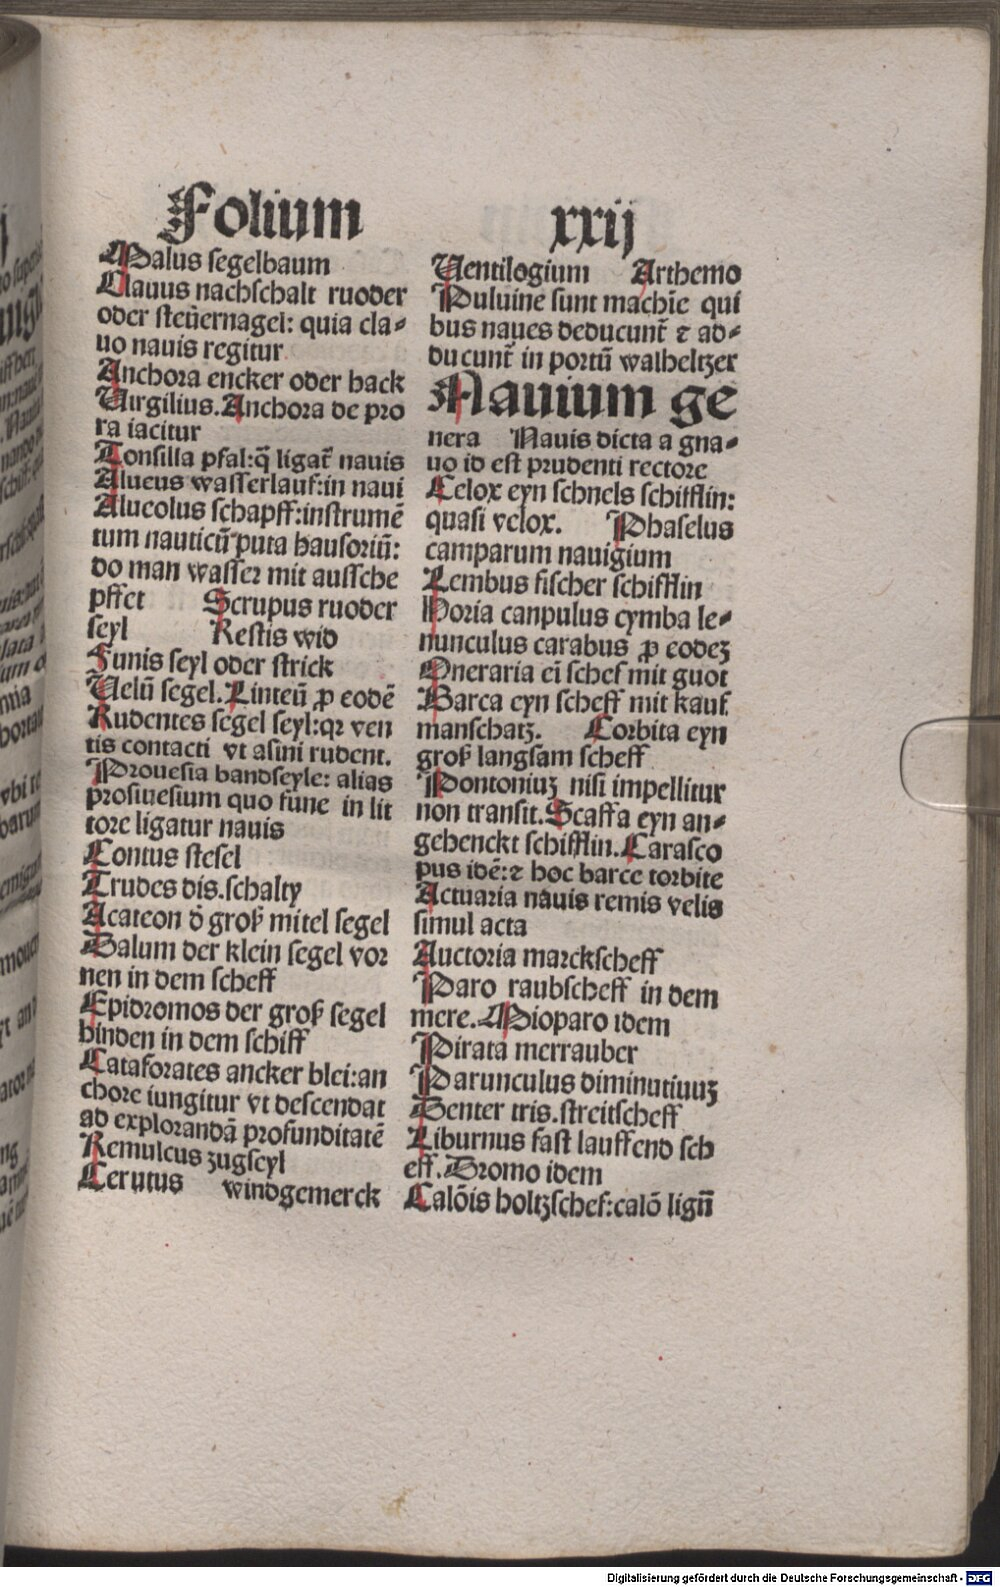 Folium xxij
Malus segelbaum
Clauus nachschalt ruoder
oder steüernagel: quia cla⸗
uo nauis regitur
Anchora encker oder hack
Uirgilius. Anchora de pro
ra iacitur
Tonsilla pfal: q̄ ligat᷑ nauis
Alueus wasserlauf: in naui
Alueolus schapff: instrumē
tum nauticū puta hausoriū:
do man wasser mit aussche
pffet Scrupus ruoder
seyl Restis wid
Funis seyl oder strick
Uelū segel. Linteū ꝓ eodē
Rudentes segel seyl: qꝛ ven
tis contacti vt asini rudent.
Prouesia bandseyle: alias
prosiuesium quo fune in lit
tore ligatur nauis
Contus stefel
Trudes dis. schalty
Acateon d̕ groß mitel segel
Dalum der klein segel vor
nen in dem scheff
Epidromos der groß segel
hinden in dem schiff
Cataforates ancker blei: an
chore iungitur vt descendat
ad explorandā profunditatē
Remulcus zugseyl
Cerutus windgemerck
Uentilogium Arthemo
Puluine sunt machīe qui
bus naues deducunt᷑ ⁊ ad⸗
ducunt᷑ in portū walheltzer
Nauium ge
nera Nauis dicta a gna⸗
uo id est prudenti rectore
Celox eyn schnels schifflin:
quasi velox. Phaselus
camparum nauigium
Lembus fischer schifflin
Horia canpulus cymba le⸗
nunculus carabus ꝓ eodeꝫ
Oneraria eī schef mit guot
Barca eyn scheff mit kauf
manschatz. Corbita eyn
groß langsam scheff
Pontoniuꝫ nisi impellitur
non transit. Scaffa eyn an⸗
gehenckt schifflin. Carasco
pus idē: ⁊ hoc barce torbite
Actuaria nauis remis velis
simul acta
Auctoria marckscheff
Paro raubscheff in dem
mere. Mioparo idem
Pirata merrauber
Parunculus diminutiuuꝫ
Denter tris. streitscheff
Liburnus fast lauffend sch
eff. Dromo idem
Calōis holtzschef: calō lignū
Digitalisierung gefördert durch die Deutsche Forschungsgemeinschaft - DFG